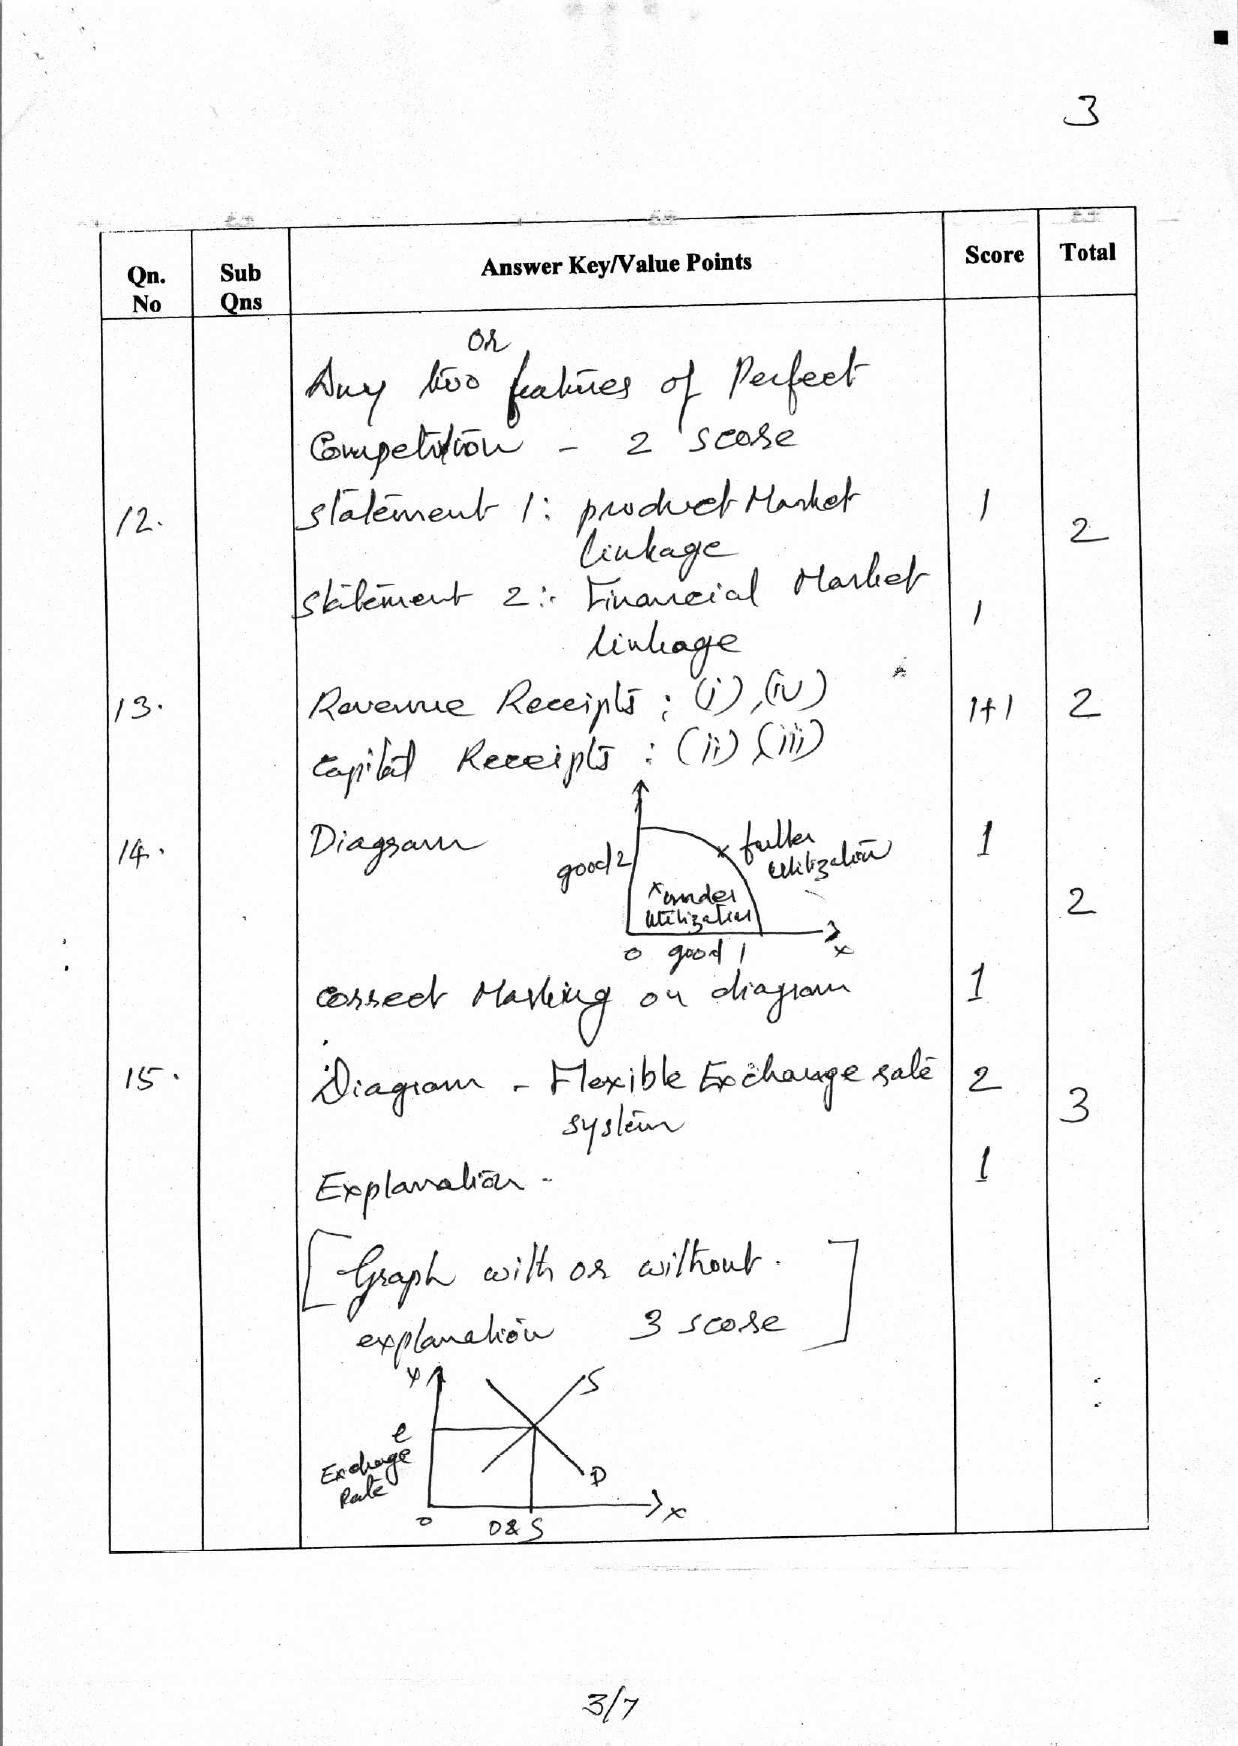 3
Qn. No Sub Qns Answer Key/Value Points Score Total
or
Any two features of Perfect
Competition - 2 score
12. Statement 1: product Market 1 2
linkage
Statement 2: Financial Market 1
linkage
13. Revenue Receipts : (i), (iv) 1+1 2
Capital Receipts : (ii) (iii)
14. Diagram 1 2
good 2
x fuller utilization
x under utilization
0 good 1 x
Correct Marking on diagram 1
15. Diagram - Flexible Exchange rate 2 3
system
Explanation - 1
[Graph with or without.
explanation 3 score]
y S
e
Exchage Rate
D
0 D & S x
3/7